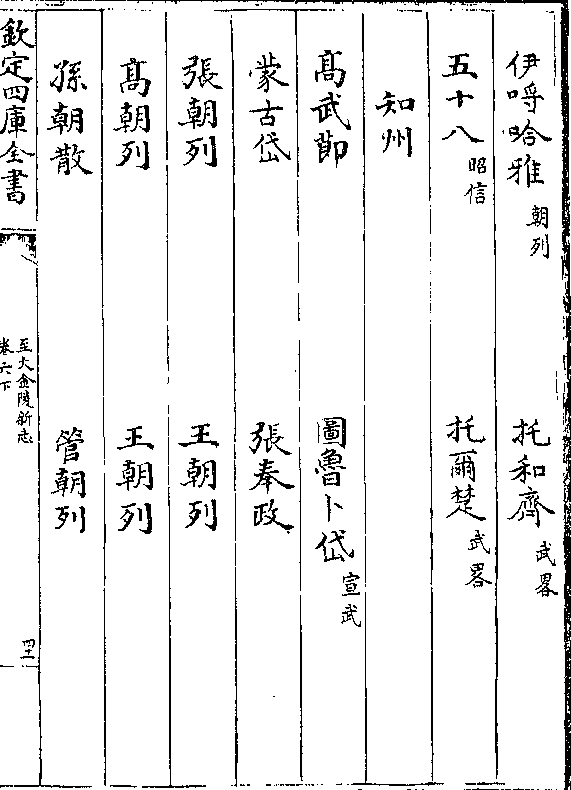 伊嘑哈雅 朝列 托和齊 武畧
五十八 昭信 托爾楚 武畧
知州
高武節 圖魯卜岱 宣武
蒙古岱 張奉政
張朝列 王朝列
高朝列 王朝列
孫朝散 管朝列
欽定四庫全書
至大金陵新志
卷六下
四十一